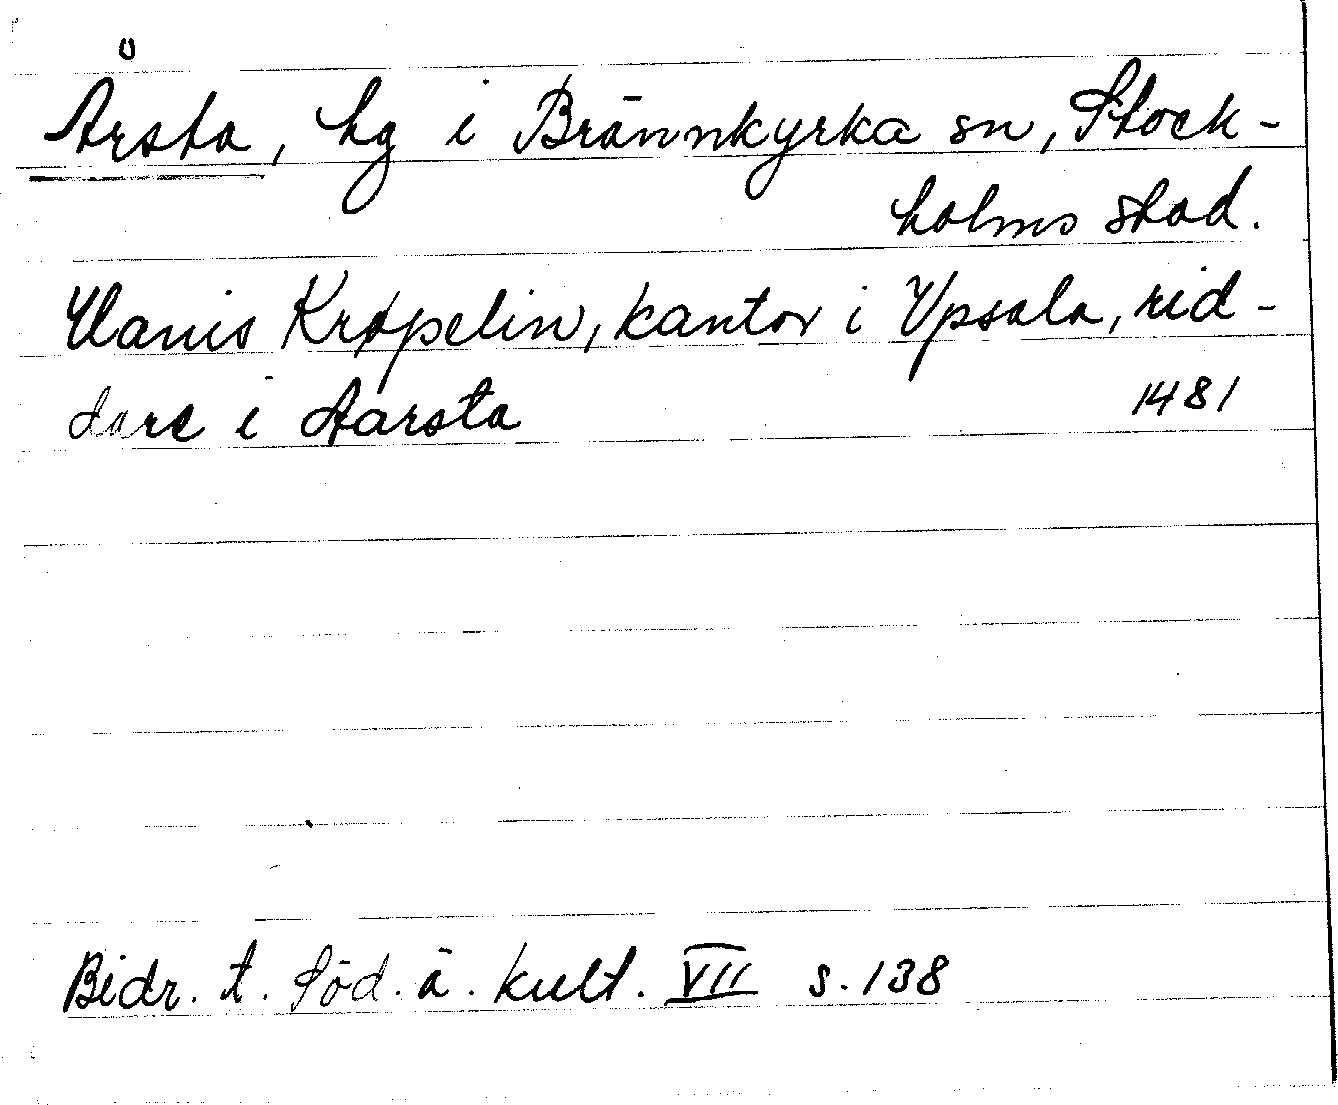 Årsta, hg i Brännkyrka sn, Stock-
holms stad.
Hanis Krøpelin, kantor i Upsala, rid-
dare i Aarsta 1481
Bidr. t. Söd. ä. kult. VII s. 138